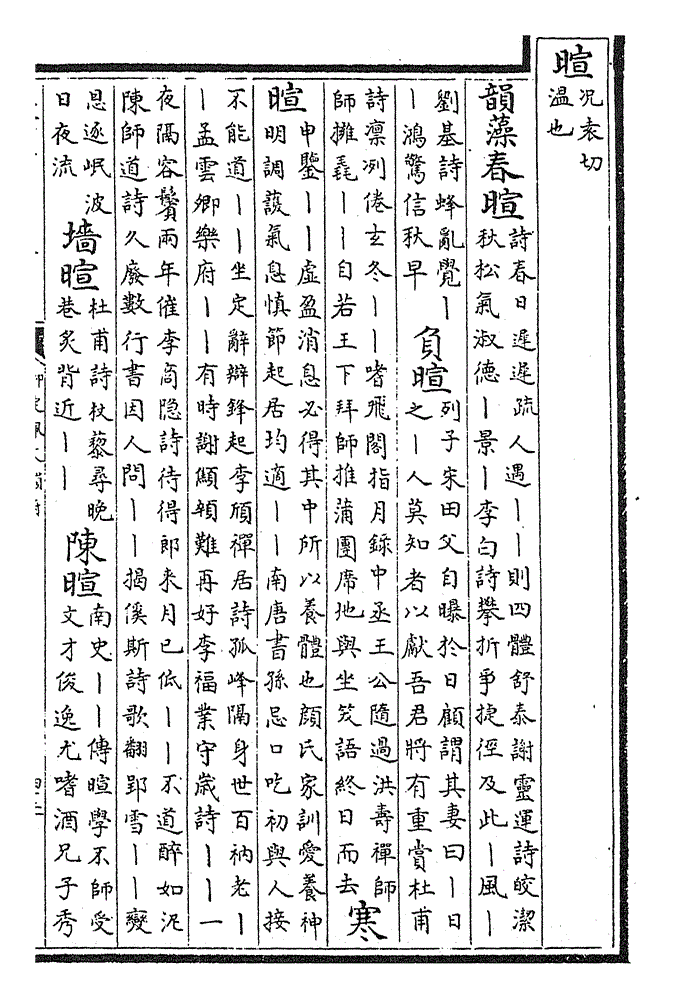 暄况袁切
温也
韻藻春暄詩春日遲遲疏人遇丨丨則四體舒泰謝靈運詩皎潔
秋松氣淑德丨景丨李白詩攀折爭捷徑及此丨風丨
劉基詩蜂亂覺丨
丨鴻驚信秋早
負暄列子宋田父自曝於日顧謂其妻曰丨日
之丨人莫知者以獻吾君將有重賞杜甫
詩凛冽倦玄冬丨丨嗜飛閣指月錄中丞王公隨過洪壽禪師
師擁毳丨丨自若王下拜師推蒲團席地與坐笑語終日而去
寒
暄申鑒丨丨虛盈消息必得其中所以養體也顏氏家訓愛養神
明調護氣息慎節起居均適丨丨南唐書孫忌口吃初與人接
不能道丨丨坐定辭辯鋒起李頎禪居詩孤峰隔身世百衲老丨
丨孟雲卿樂府丨丨有時謝顦顇難再好李福業守歲詩丨丨一
夜隔容鬢兩年催李商隐詩待得郎来月已低丨丨不道醉如泥
陳師道詩久廢數行書因人問丨丨揭傒斯詩歌翻郢雪丨丨變
思逐岷波
日夜流
墻暄杜甫詩杖藜尋晚
巷炙背近丨丨
陳暄南史丨丨傳暄學不師受
文才俊逸尤嗜酒兄子秀